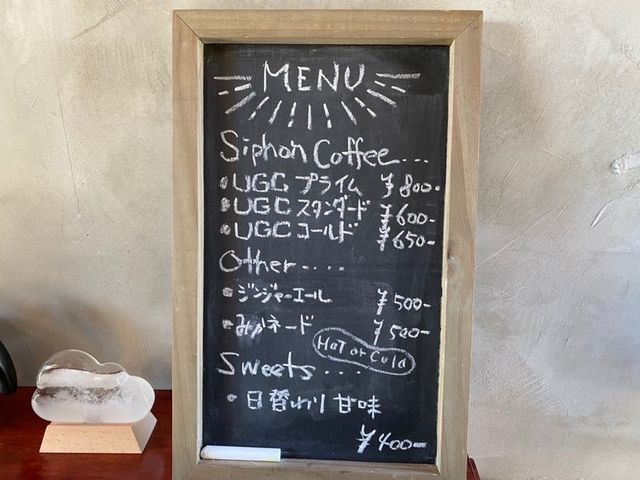 MENU
Siphon Coffee...
・UGC プライム ¥800-
・UGC スタンダード ¥600-
・UGC コールド ¥650-
Other....
・ジンジャーエール ¥500-
・みかネード ¥500-
Hot or Cold
Sweets....
・日替わり甘味
¥400-